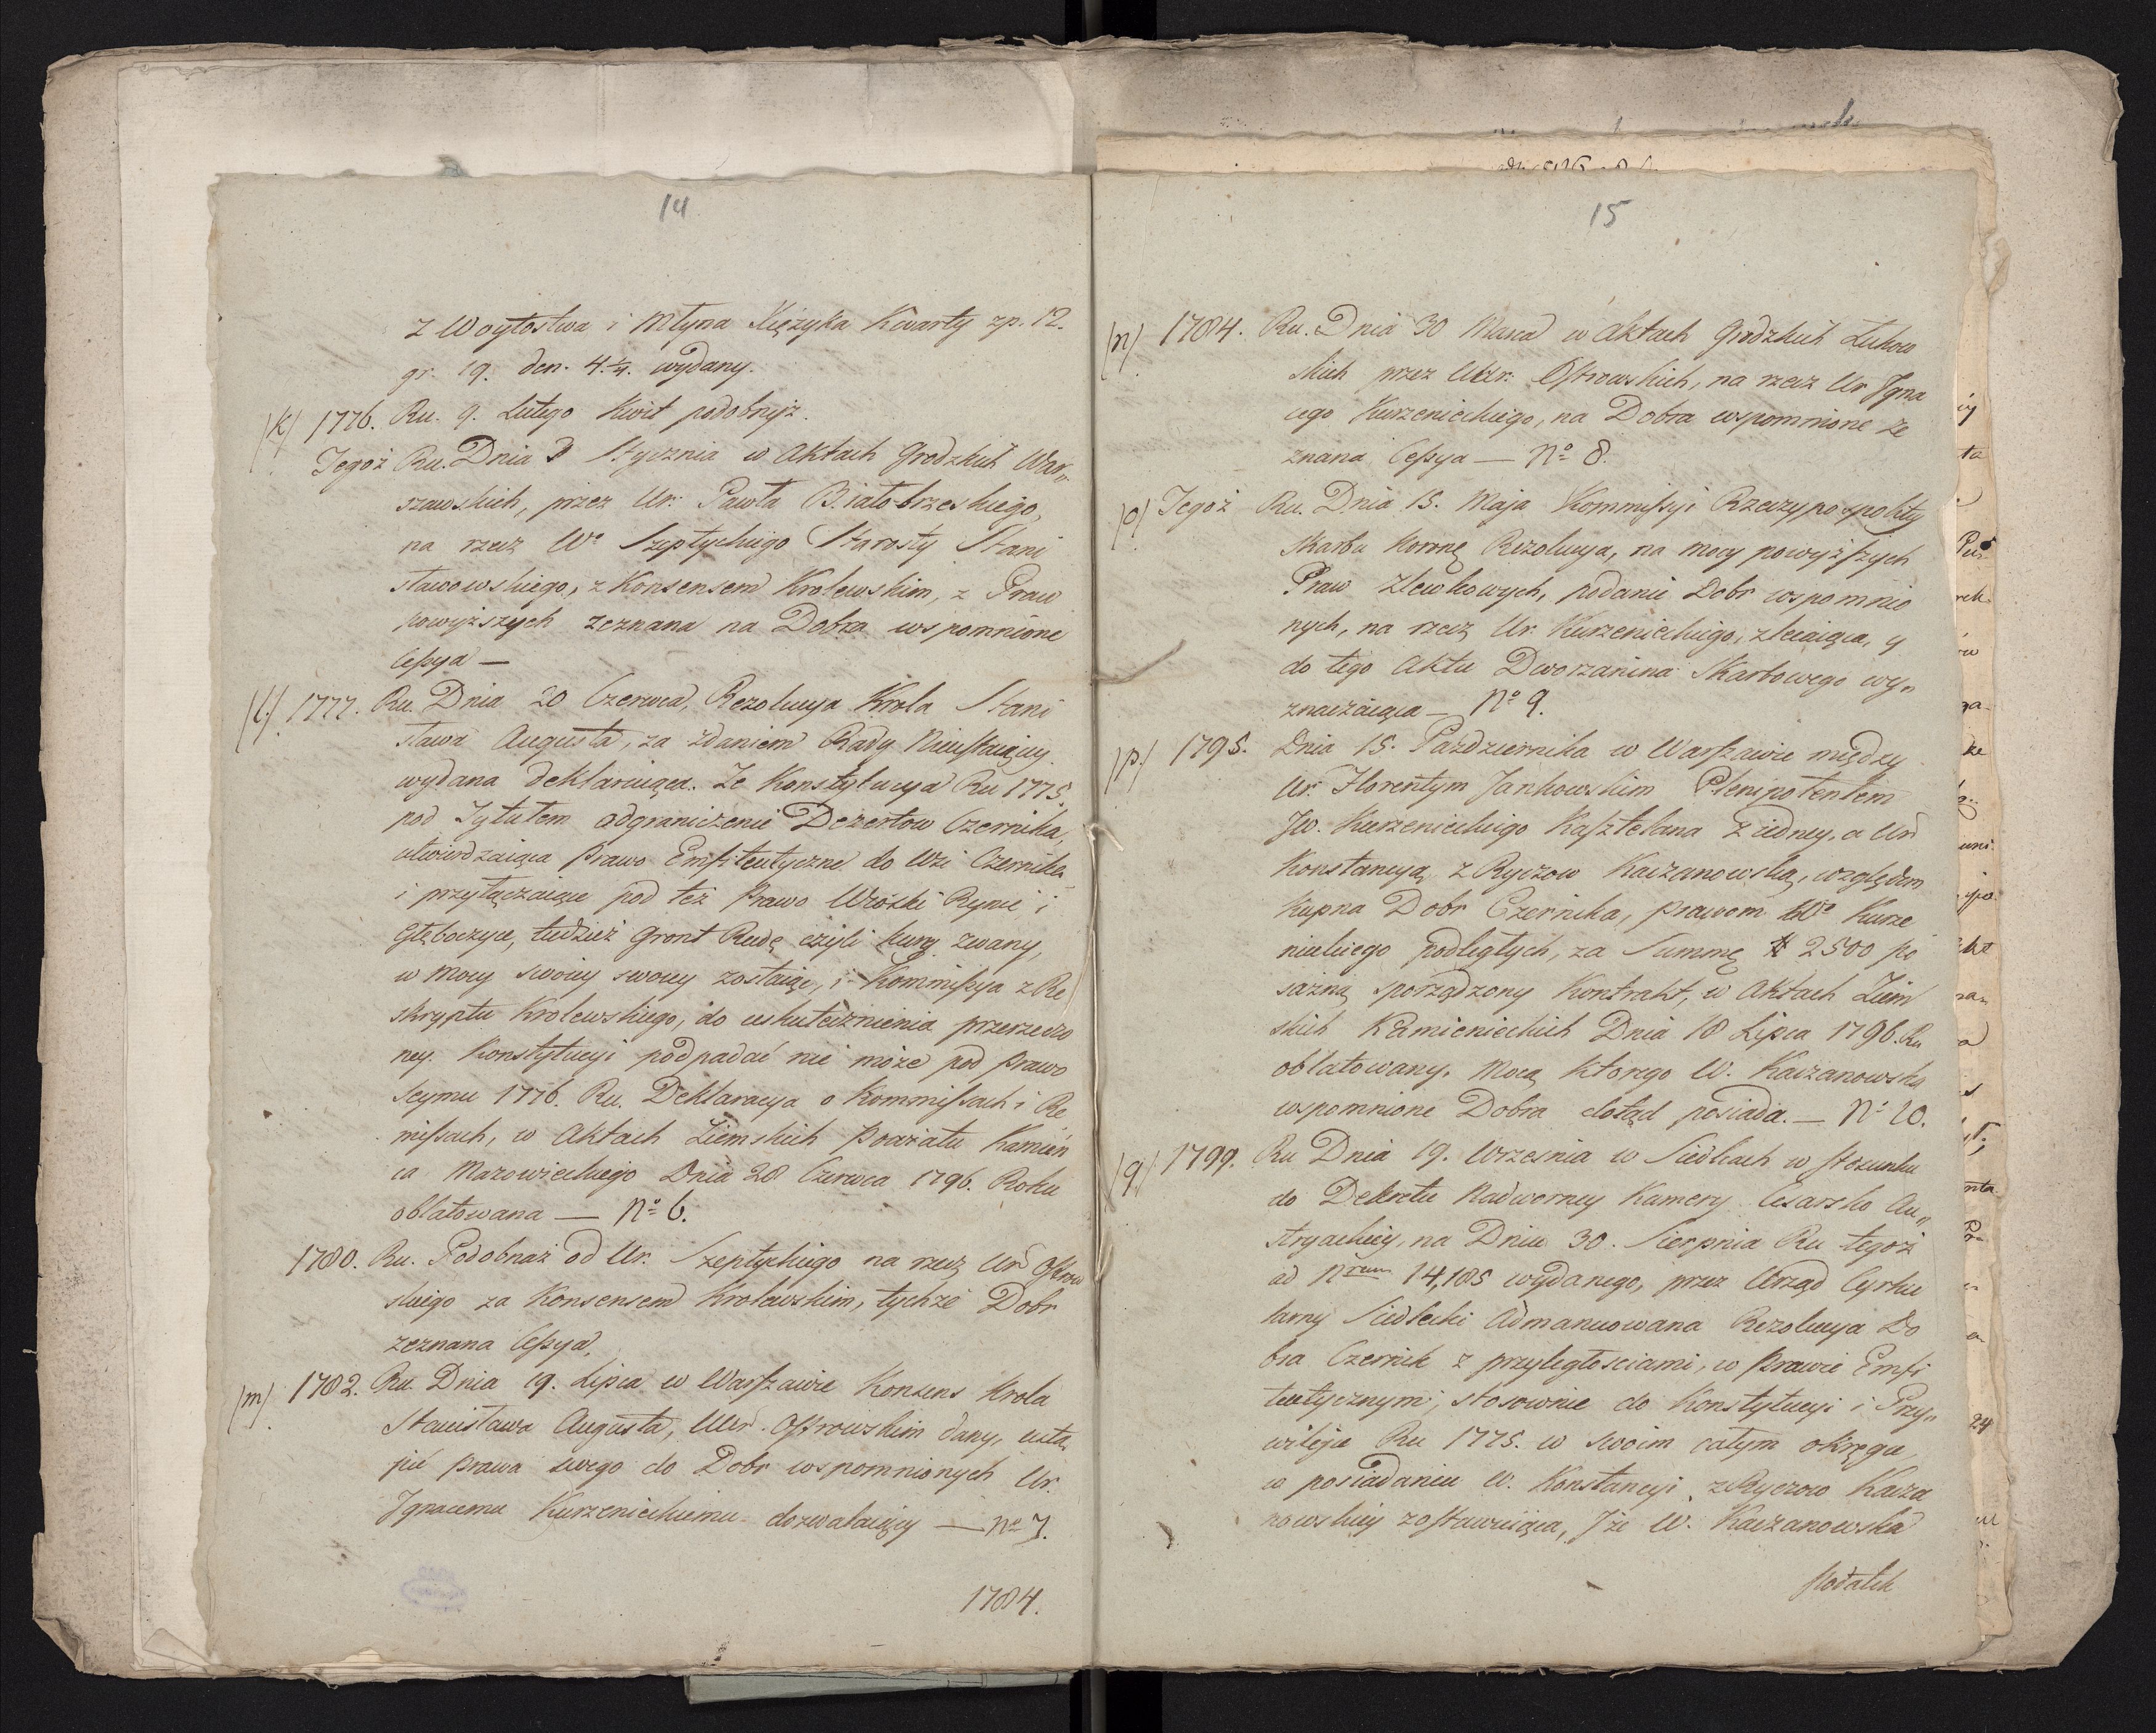 14
z Woytostwa i Młyna Xiężyka Kwarty zp. 12.
gr. 19. den. 4. wydany.
/k/ 1776. Ru. 9. Lutego Kwit podobnyż.
Tegoż Ru. Dnia 3 Stycznia w Aktach Grodzkich War„
szawskich, przez Ur: Pawła Białobrzeskiego,
na rzecz Wo Szeptyckiego Starosty Stani
sławowskiego, z Konsensem Krolewskim, z Praw
powyższych zeznana na Dobra wspomnione
Cessya —
/l./ 1777. Ru. Dnia 20 Czerwca, Rezolucya Krola Stani
sława Augusta, za zdaniem Rady Nieustaiącey.
wydana deklaruiąca. Że Konstytucya Ru 1775.
pod Tytułem odgraniczenie Dezertow Czernika,
utwierdzaiąca Prawo Emfiteutyczne do Wsi Czernika
i przyłączaiące pod też Prawo Wróski Rynie i
Głęboczyce, tudzież Gront Rudę czyli kurę zwany,
w mocy swoiey swoiey zostaiąc, i Kommissya z Re
skryptu Krolewskiego, do uskutecznienia przerzeczo
ney. Konstytucyi podpadać nie może pod Prawo
Seymu 1776. Ru. Deklaracya o Kommissach i Re
missach, w Aktach Ziemskich Powiatu Kamień
ca Mazowieckiego Dnia 28 Czerwca 1796. Roku
oblatowana — No 6.
1780. Ru. Podobnaż od Ur. Szeptyckiego na rzecz Ur Ostrow
skiego za Konsensem Krolewskim, tychże Dobr
zeznana Cessya,
/m/ 1782. Ru. Dnia 19. Lipca w Warszawie Konsens Krola
Stanisława Augusta, UUr. Ostrowskim dany, ustą
pić Prawa swego do Dobr wspomnionych Ur.
Ignacemu Kurzenieckiemu dozwalaiący — No 7.
1784.
15
/n/ 1784. Ru. Dnia 30 Marca w Aktach Grodzkich Łukow
skich przez UUr: Ostrowskich, na rzecz Ur Igna
cego Kurzenieckiego, na Dobra wspomnione ze
znana Cessya — No 8.
/o/ Tegoż Ru. Dnia 15. Maja Kommissyi Rzeczypospolitey
Skarbu Koronę Rezolucya, na mocy powyższych
Praw Zlewkowych, podanie Dobr wspomnio
nych, na rzecz Ur. Kurzenieckiego, zlecaiąca, y
do tego Aktu Dworzanina Skarbowego wy„
znaczaiąca — No 9.
/p./ 1795. Dnia 15. Pazdziernika w Warszawie między
Ur. Florentym Jankowskim Plenipotentem
JW. Kurzenieckiego Kasztelana z iedney, a Ur
Konstancyą z Ryczow Kaczanowską, względem
Kupna Dobr Czernika, prawom Wo Kurze
nieckiego podległych, za Summę # 2500 po
sażną sporządzony Kontrakt, w Aktach Ziem
skich Kamienieckich Dnia 18 Lipca 1796. Ru
oblatowany. Mocą ktorego W. Kaczanowska
wspomnione Dobra dotąd posiada. — No 10.
/q/ 1799. Ru Dnia 19. Września w Siedlcach w stosunku
do Dekretu Nadworney Kamery Cesarsko Au„
stryackiey, na Dniu 30. Sierpnia Ru tegoż
ad Nrum 14,185 wydanego, przez Urząd Cyrku
larny Siedlecki Admanuowana Rezolucya Do
bra Czernik z przyległościami, w Prawie Emfi
teutycznym, stosownie do Konstytucyi i Przy„
wileju Ru 1775. w swoim całym okręgu
w posiadaniu W. Konstancyi z Ryczow Kacza
nowskiey zostawuiąca, Iże W. Kaczanowska